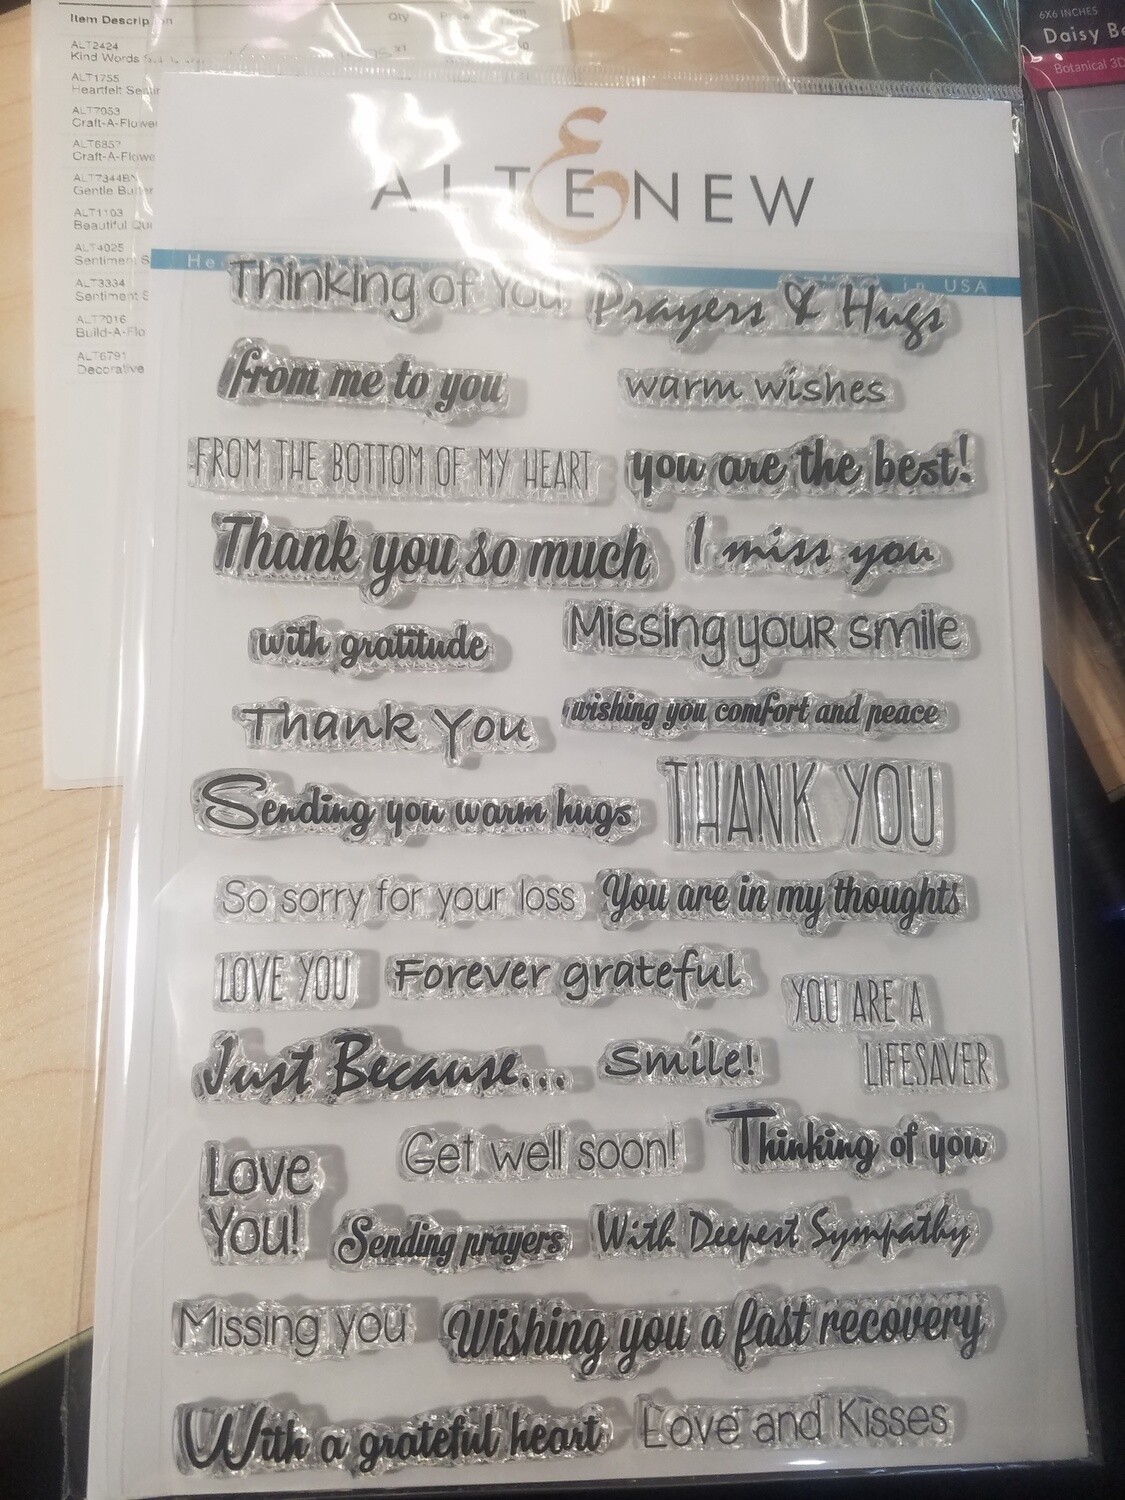 Item Description Qty
ALT2424
Kind Words
ALT1755
Heartfelt
ALT7053
Craft-A-Flower
ALT6857
Craft-A-Flowe
ALT7344BN
Gentle
ALT1103
Beautiful
ALT4025
Sentiment S
ALT3334
Sentiment S
ALT7016
Build-A-Flo
ALT6791
Decorative
6X6 INCHES
Daisy
Botanical 3D
ALTENEW
in USA
Thinking of You
Prayers & Hugs
from me to you
warm wishes
FROM THE BOTTOM OF MY HEART
you are the best!
Thank you so much
I miss you
with gratitude
Missing your smile
Thank You
wishing you comfort and peace
Sending you warm hugs
THANK YOU
So sorry for your loss
You are in my thoughts
LOVE YOU
Forever grateful
YOU ARE A
LIFESAVER
Just Because...
Smile!
Get well soon!
Thinking of you
Love
You!
Sending prayers
With Deepest Sympathy
Missing you
Wishing you a fast recovery
With a grateful heart
Love and Kisses